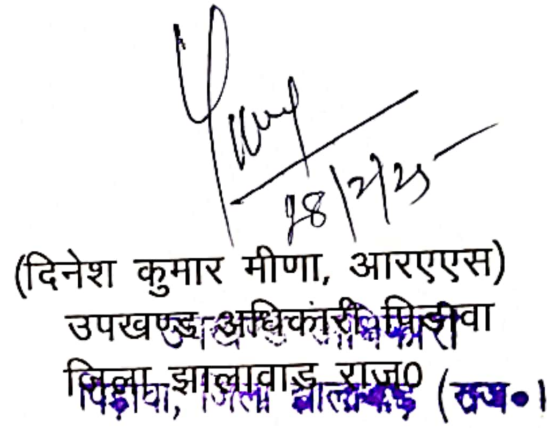 28/2/25
(दिनेश कुमार मीणा, आरएएस)
उपखण्ड अधिकारी पिडावा
जिला झालावाड राज0
उपखण्ड अधिकारी
पिड़ावा, जिला झालावाड़ (राज०)